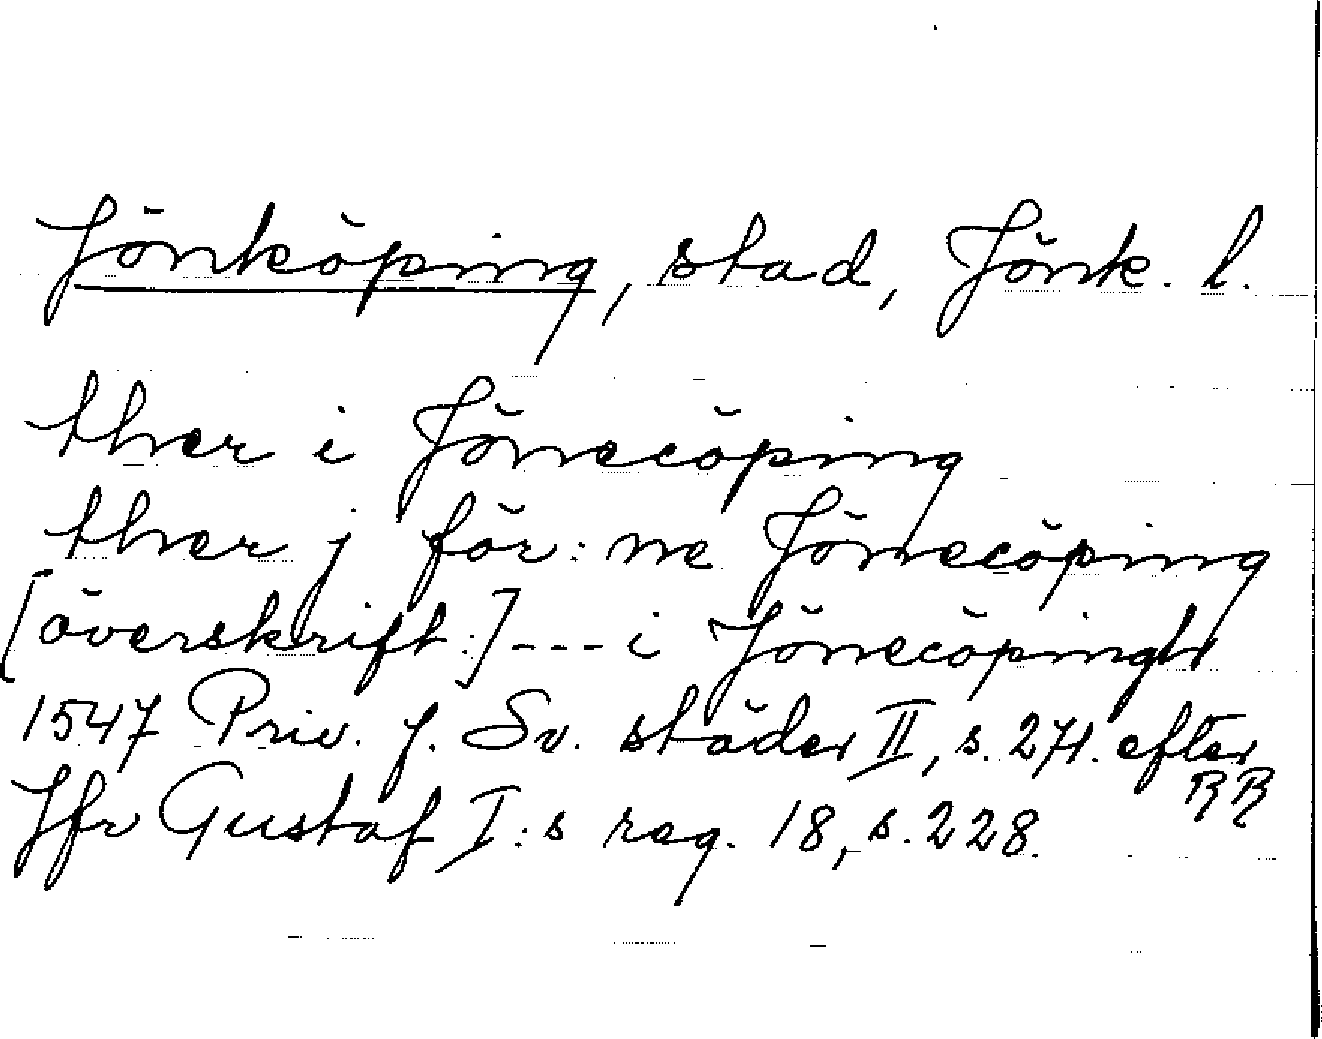 Jönköping, stad, Jönk. l.
ther i Jönecöping
ther j för: ne Jönecöping
[överskrift:] --- i Jönecöpingh
1547 Priv. f. Sv. städer II, s. 271. efter
RR
Jfr Gustaf I:s reg. 18, s. 228.